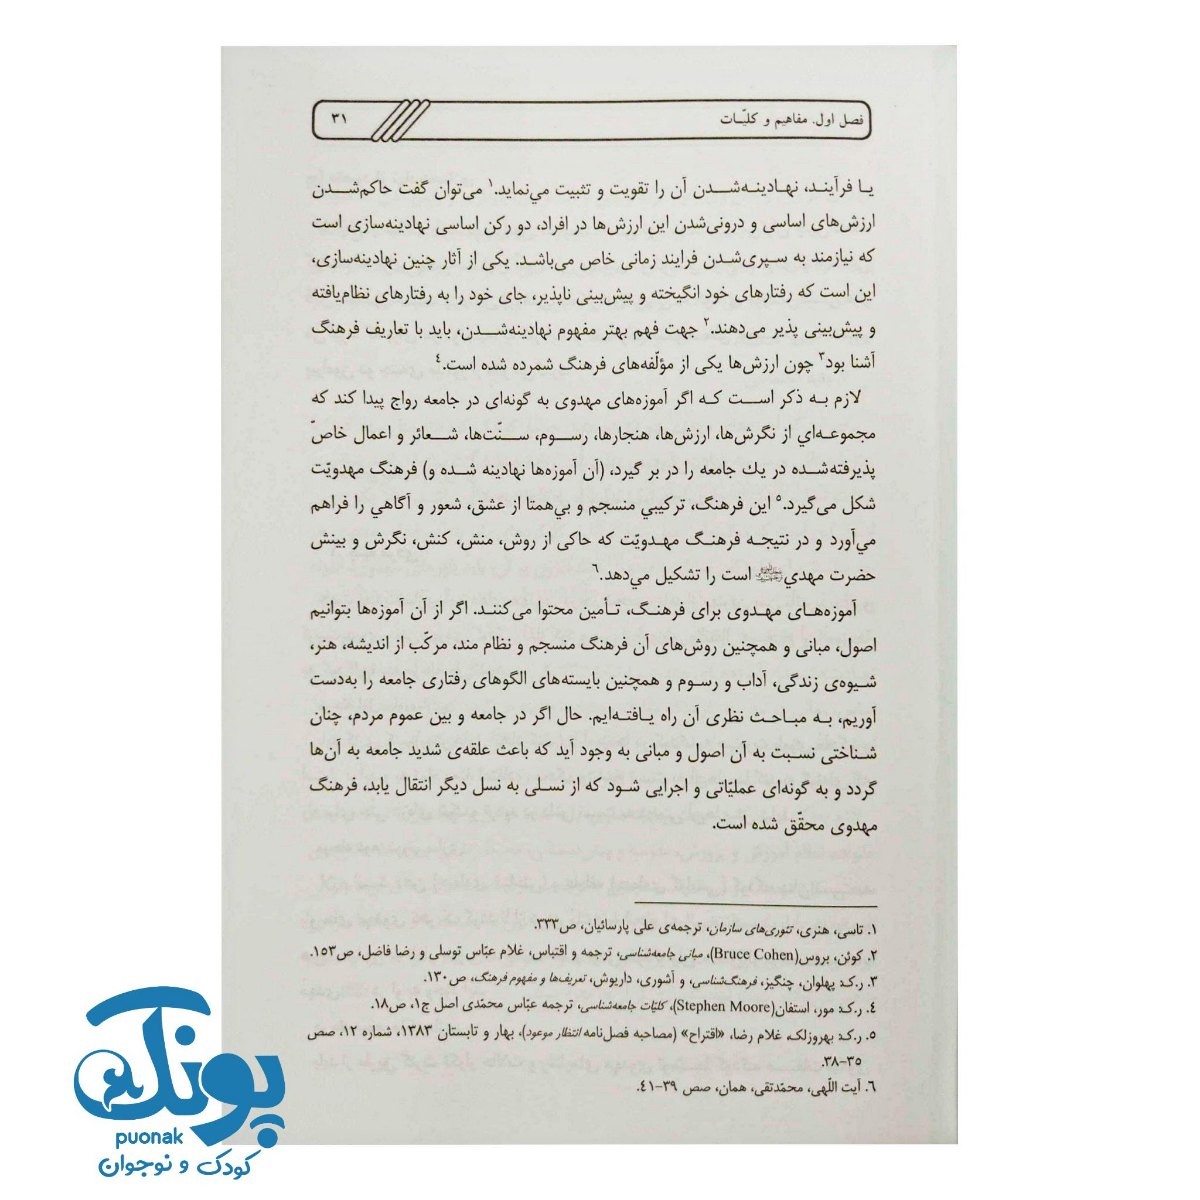 فصل اول. مفاهیم و کلیّات
۳۱
یـا فرآینـد، نهـادینـه‌شـــدن آن را تقویت و تثبیت مي‌نماید.۱ می‌توان گفت حاکم‌شــدن
ارزش‌های اساسی و درونی‌شدن این ارزش‌ها در افراد، دو رکن اساسی نهادینه‌سازی است
که نیازمند به سپری‌شدن فرایند زمانی خاص می‌باشد. یکی از آثار چنین نهادینه‌سازی،
این است که رفتارهای خود انگیخته و پیش‌بینی ناپذیر، جای خود را به رفتارهای نظام‌یافته
و پیش‌بینی پذیر می‌دهند.۲ جهت فهم بهتر مفهوم نهادینه‌شـــدن، باید با تعاریف فرهنگ
آشنا بود۳ چون ارزش‌ها یکی از مؤلّفه‌های فرهنگ شمرده شده است.۴
لازم بـه ذکر اســـت کـه اگر آموزه‌های مهدوی به گونه‌ای در جامعه رواج پیدا کند که
مجموعـه‌اي از نگرش‌ها، ارزش‌ها، هنجارها، رسـوم، ســـنّت‌ها، شـعائر و اعمال خاصّ
پذیرفته‌شده در یك جامعه را در بر گیرد، (آن آموزه‌ها نهادینه شده و) فرهنگ مهدویّت
شکل می‌گیرد.۵ این فرهنگ، ترکیبي منسجم و بي‌همتا از عشق، شعور و آگاهي را فراهم
مي‌آورد و در نتیجـه فرهنـگ مهـدویّت که حاکی از روش، منش، کنش، نگرش و بینش
حضرت مهدي است را تشکیل مي‌دهد.۶
آموزه‌هـای مهـدوی برای فرهنـگ، تـأمین محتوا می‌کننـد. اگر از آن آموزه‌ها بتوانیم
اصول، مبانی و همچنین روش‌های آن فرهنگ منسجم و نظام مند، مرکّب از اندیشه، هنر،
شیوه‌ی زندگی، آداب و رسوم و همچنین بایسته‌های الگوهای رفتاری جامعه را به‌دست
آوریم، بـه مبـاحـث نظری آن راه یـافتـه‌ایم. حال اگر در جامعه و بین عموم مردم، چنان
شناختی نسبت به آن اصول و مبانی به وجود آید که باعث علقه‌ی شدید جامعه به آن‌ها
گردد و به گونه‌ای عملیّاتی و اجرایی شود که از نسلی به نسل دیگر انتقال یابد، فرهنگ
مهدوی محقّق شده است.
۱. تاسی، هنری، تئوری‌های سازمان، ترجمه‌ی علی پارسائیان، ص۳۳۳.
۲. کوئن، بروس(Bruce Cohen)، مبانی جامعه‌شناسی، ترجمه و اقتباس، غلام عبّاس توسلی و رضا فاضل، ص۱۵۳.
۳. ر.ک: پهلوان، چنگیز، فرهنگ‌شناسی، و آشوری، داریوش، تعریف‌ها و مفهوم فرهنگ، ص۱۳۰.
۴. ر.ک: مور، استفان(Stephen Moore)، کلیّات جامعه‌شناسی، ترجمه عبّاس محمّدی اصل ج۱، ص۱۸.
۵. ر.ک: بهروزلک، غلام رضا، «اقتراح» (مصاحبه فصل‌نامه انتظار موعود)، بهار و تابستان ۱۳۸۳، شماره ۱۲، صص
۳۵-۳۸.
۶. آیت اللّهی، محمّدتقی، همان، صص ۳۹-۴۱.
پونک
puonak
کودک و نوجوان